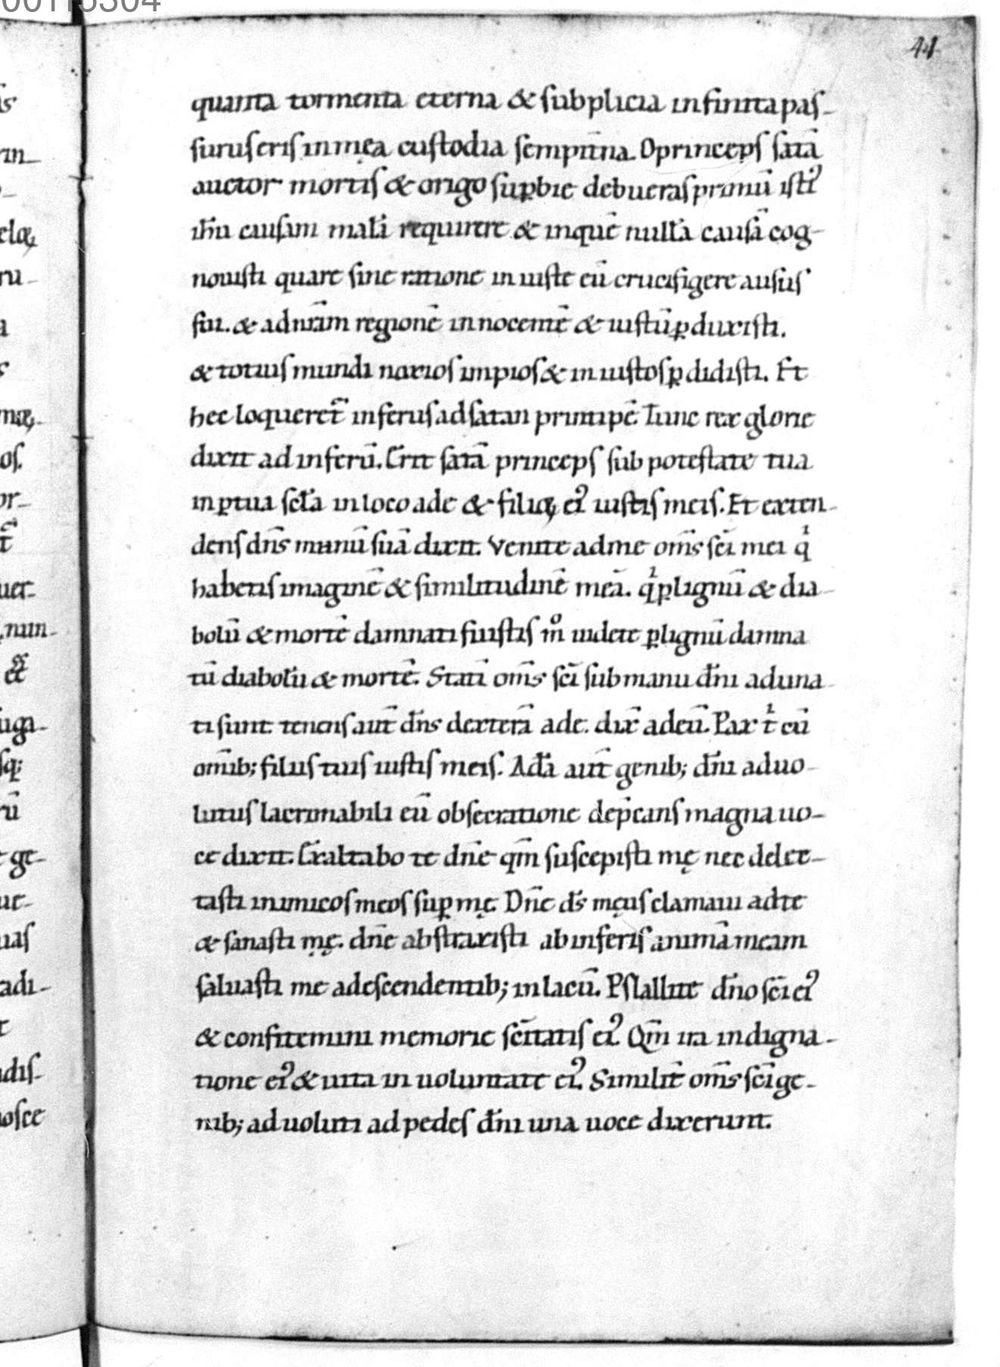 00115304
44
quanta tormenta eterna & subplicia infinita pas-
surus eris in męa custodia sempit̄na. O princeps satā
auctor mortis & origo supbie debueras primū isti᾽
ih̄u causam malā requirere & in quē nullā causā cog-
nouisti quare sine ratione iniuste eū crucifigere ausus
fui. & ad nr̄am regionē innocentē & iustū ꝑduxisti.
& totius mundi noxios impios & iniustos ꝑdidisti. Et
hec loqueret̄ inferus ad satan principē. Tunc rex glorie
dixit ad inferū. Erit satā princeps sub potestate tua
in ꝑtua scl̄a in loco ade & filioꝝ ei᾽ iustis meis. Et exten-
dens dn̄s manū suā dixit. Venite ad me om̄s sc̄i mei qͥ
habetis imaginē & similitudinē meā. qͥ ꝑ lignū & dia-
bolū & mortē damnati fuistis mº uidete ꝑ lignū damna
tū diabolū & mortē. Statī om̄s sc̄i sub manu dn̄i aduna
ti sunt tenens aut̄ dn̄s dexterā ade. dix̄ ad eū. Pax tͥ cū
omīb; filiis tuis iustis meis. Adā aut̄ genib; dn̄i aduo-
lutus lacrimabili eū obsecratione dep̄cans magna uo-
ce dixit. Exaltabo te dn̄e qm̄ suscepisti mę nec delec-
tasti inimicos meos sup mę. Dn̄e ds̄ męus clamaui ad te
& sanasti mę. dn̄e abstraxisti ab inferis animā meam
saluasti me a descendentib; in lacū. Psallite dn̄o sc̄i ei᾽
& confitemini memorie sc̄itatis ei᾽. Qm̄ ira in indigna-
tione ei᾽ & uita in uoluntate ei᾽. Similit̄ om̄s sc̄i ge-
nib; aduoluti ad pedes dn̄i una uoce dixerunt.